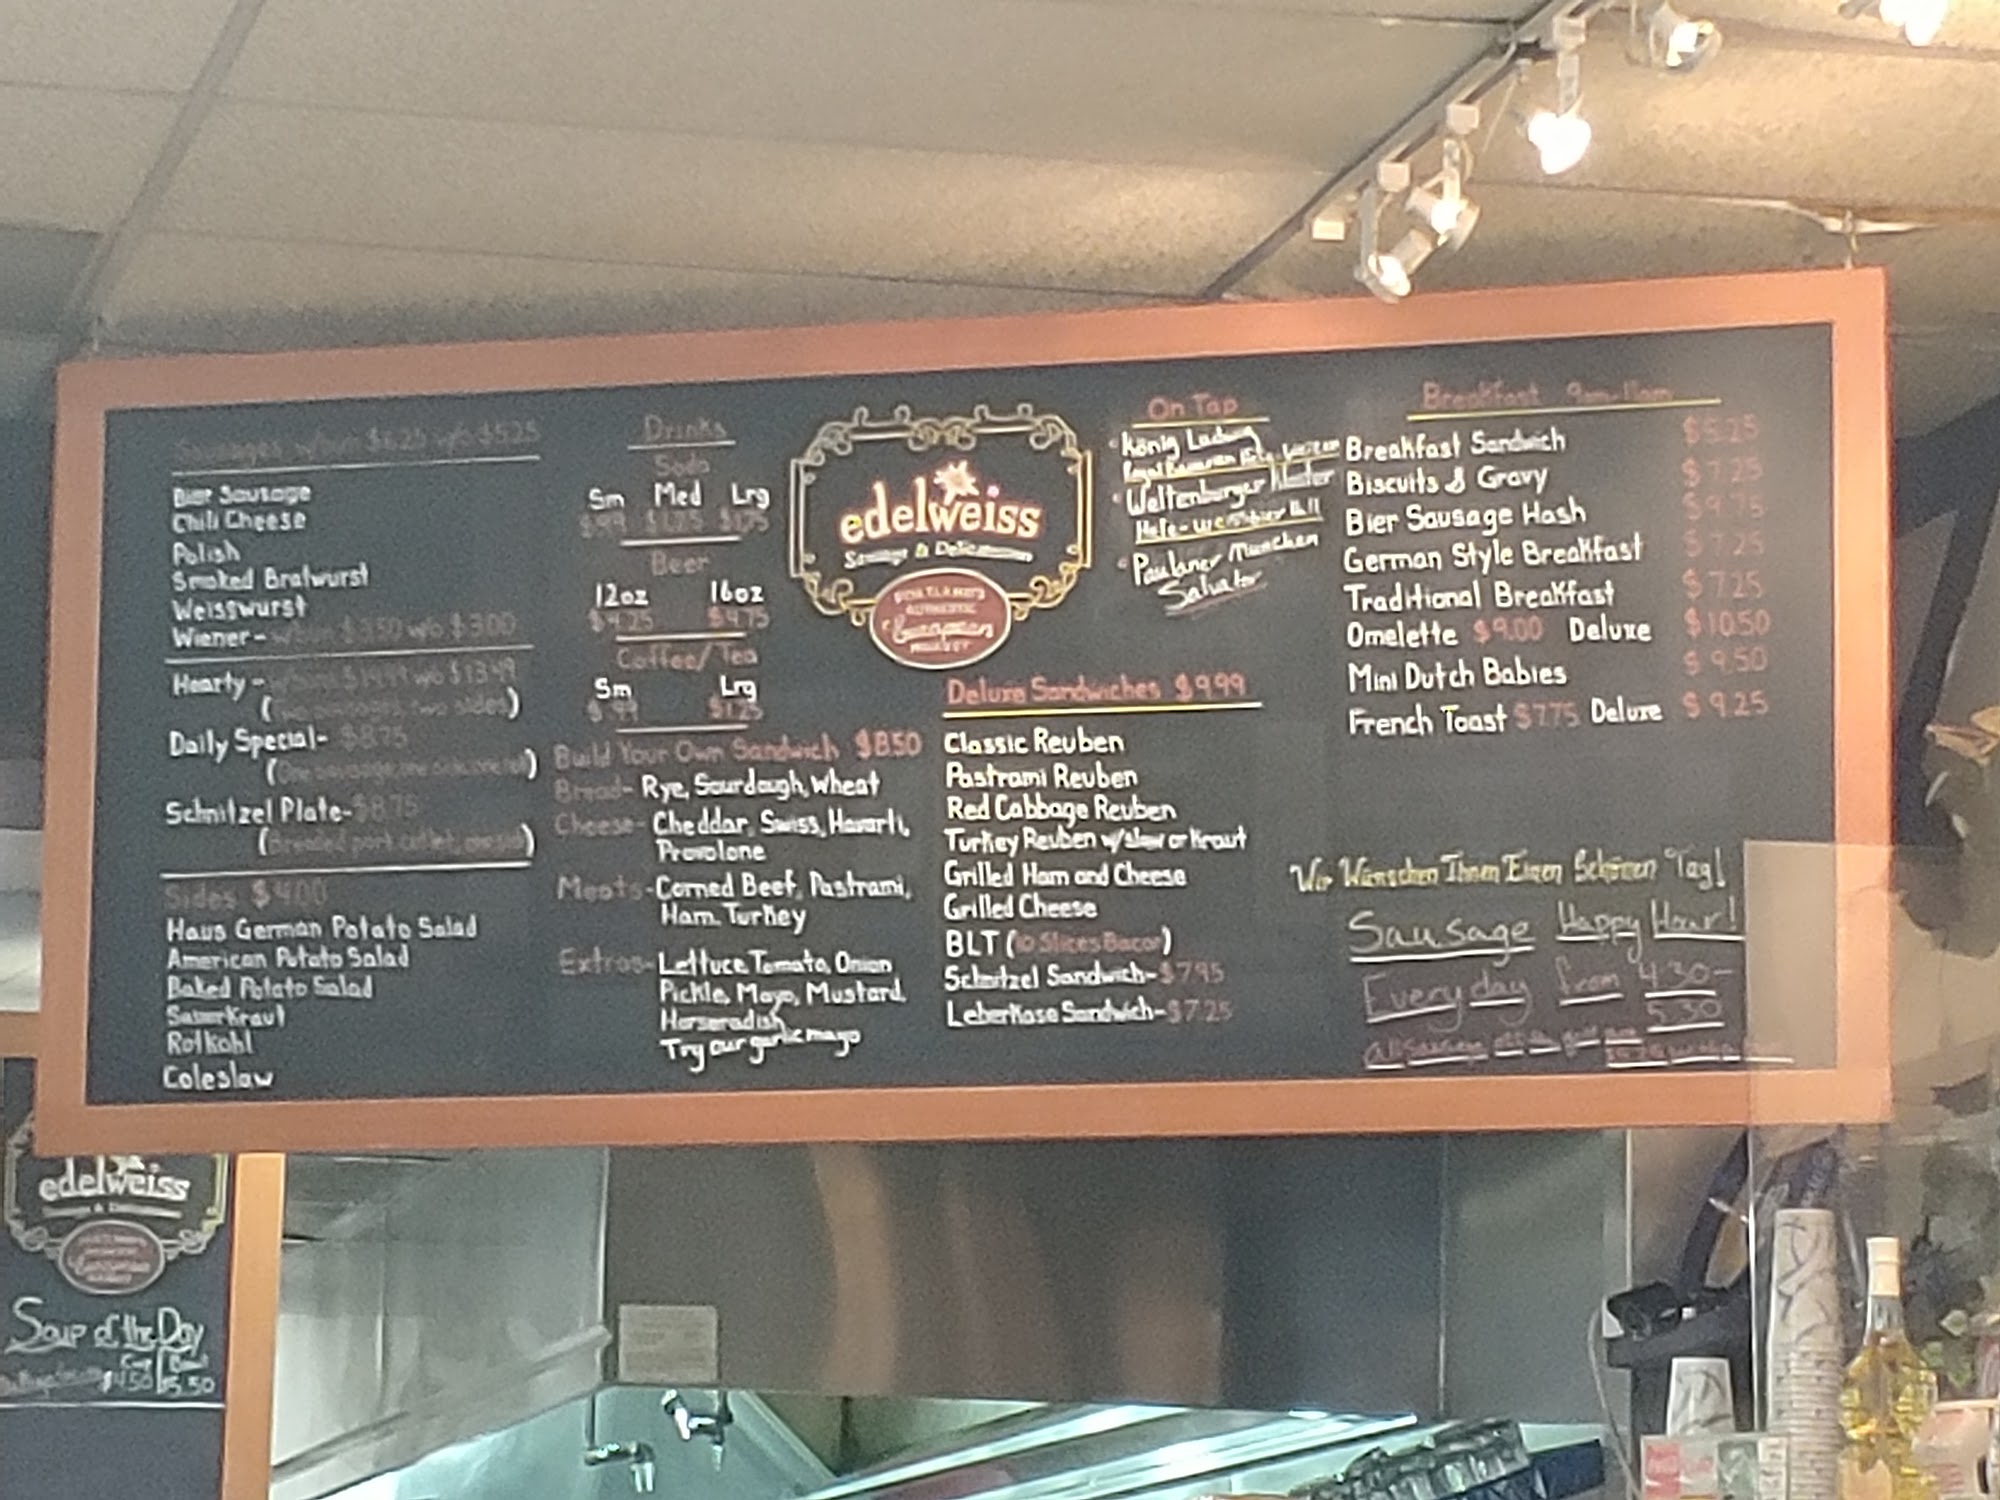 Sausages w/bun $6.25 w/o $5.25
Bier Sausage
Chili Cheese
Polish
Smoked Bratwurst
Weisswurst
Wiener - w/bun $3.50 w/o $3.00
Hearty -
(two sausages, two sides)
Daily Special- $8.75
(One sausage, one side, one roll)
Schnitzel Plate- $8.75
(Breaded pork cutlet, one side)
Sides $4.00
Haus German Potato Salad
American Potato Salad
Baked Potato Salad
Sauerkraut
Rotkohl
Coleslaw
Drinks
Soda
Sm Med Lrg
$.99 $1.25 $1.75
Beer
12oz 16oz
$4.25 $4.75
Coffee/Tea
Sm Lrg
$.99 $1.25
Build Your Own Sandwich $8.50
Bread- Rye, Sourdough, Wheat
Cheese- Cheddar, Swiss, Havarti,
Provolone
Meats- Corned Beef, Pastrami,
Ham, Turkey
Extras- Lettuce, Tomato, Onion
Pickle, Mayo, Mustard,
Horseradish
Try our garlic mayo
edelweiss
Sausage & Delicatessen
PORTLAND'S
AUTHENTIC
European
MARKET
Deluxe Sandwiches $9.99
Classic Reuben
Pastrami Reuben
Red Cabbage Reuben
Turkey Reuben w/slaw or Kraut
Grilled Ham and Cheese
Grilled Cheese
BLT (10 Slices Bacon)
Schnitzel Sandwich- $7.95
Leberkase Sandwich- $7.25
On Tap
König Ludwig
Royal Bavarian Hefe-Weizen
Weltenburger Kloster
Hefe-weissbier Hell
Paulaner Munchen
Salvator
Breakfast 9am-11am
Breakfast Sandwich $5.25
Biscuits & Gravy $7.25
Bier Sausage Hash $9.75
German Style Breakfast $7.25
Traditional Breakfast $7.25
Omelette $9.00 Deluxe $10.50
Mini Dutch Babies $9.50
French Toast $7.75 Deluxe $9.25
Wir Wünschen Ihnen Einen Schönen Tag!
Sausage Happy Hour!
Everyday from 4:30-
5:30
all sausages off the grill
edelweiss
Sausage & Delicatessen
European
Soup of the Day
Cup Bowl
$4.50 $5.50